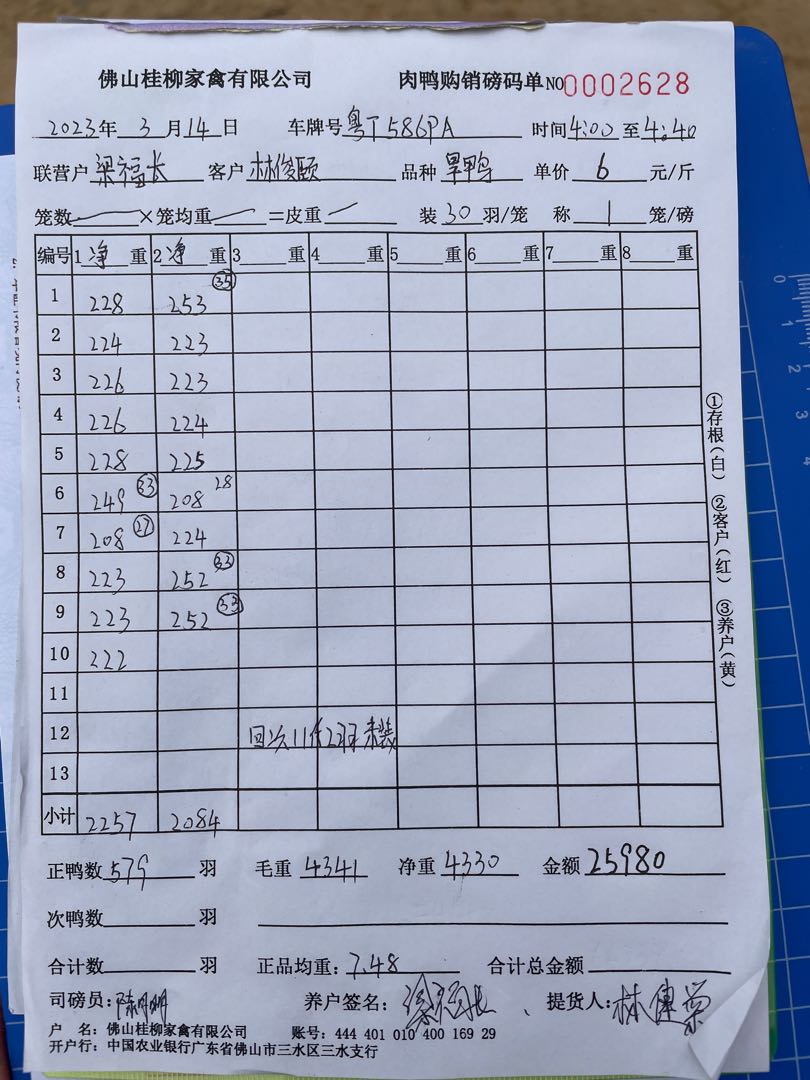 佛山桂柳家禽有限公司 肉鸭购销磅码单 NO 0002628
2023年 3月14日 车牌号粤T586PA 时间4:00至4:40
联营户梁福长 客户林俊颐 品种旱鸭 单价 6 元/斤
笼数 ×笼均重 =皮重 装 30 羽/笼 称 1 笼/磅
编号 1净重 2净重 3 重 4 重 5 重 6 重 7 重 8 重
1 228 253 35
2 224 223
3 226 223
4 226 224
5 228 225
6 249 33 208 28
7 208 27 224
8 223 252 33
9 223 252 33
10 222
11
12 回次11斤2羽未装
13
小计 2257 2084
正鸭数 579 羽 毛重 4341 净重 4330 金额 25980
次鸭数 羽
合计数 羽 正品均重: 7.48 合计总金额
司磅员:陈明明 养户签名:梁福长 提货人:林
户 名: 佛山桂柳家禽有限公司 账号: 444 401 010 400 169 29
开户行: 中国农业银行广东省佛山市三水区三水支行
①存根(白) ②客户(红) ③养户(黄)
0
1
2
3
4